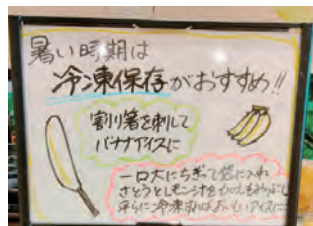 暑い時期は
冷凍保存がおすすめ!!
割り箸を刺して
バナナアイスに
一口大にちぎって袋に入れ
さとうとレモン汁をかえもみつぶし
平らに冷凍すればおいしいアイスに